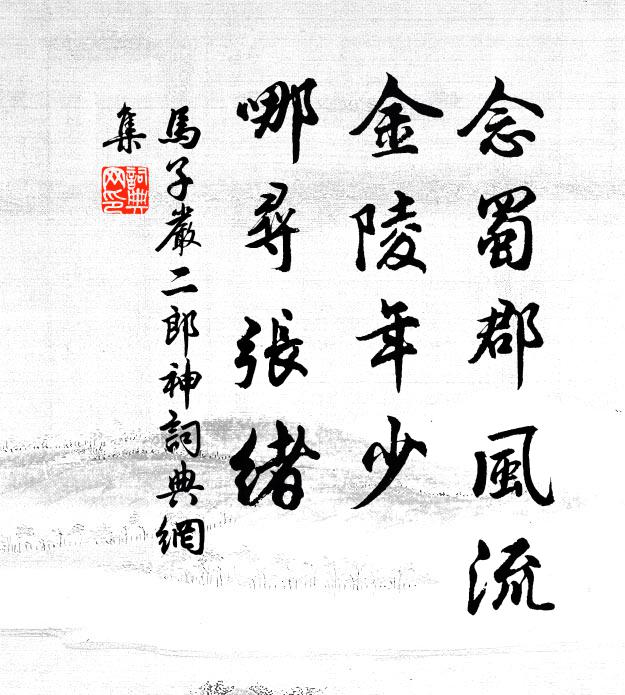 念蜀郡風流
金陵年少
哪尋張緒
馬子嚴二郎神詞典網
集
詞典
网印